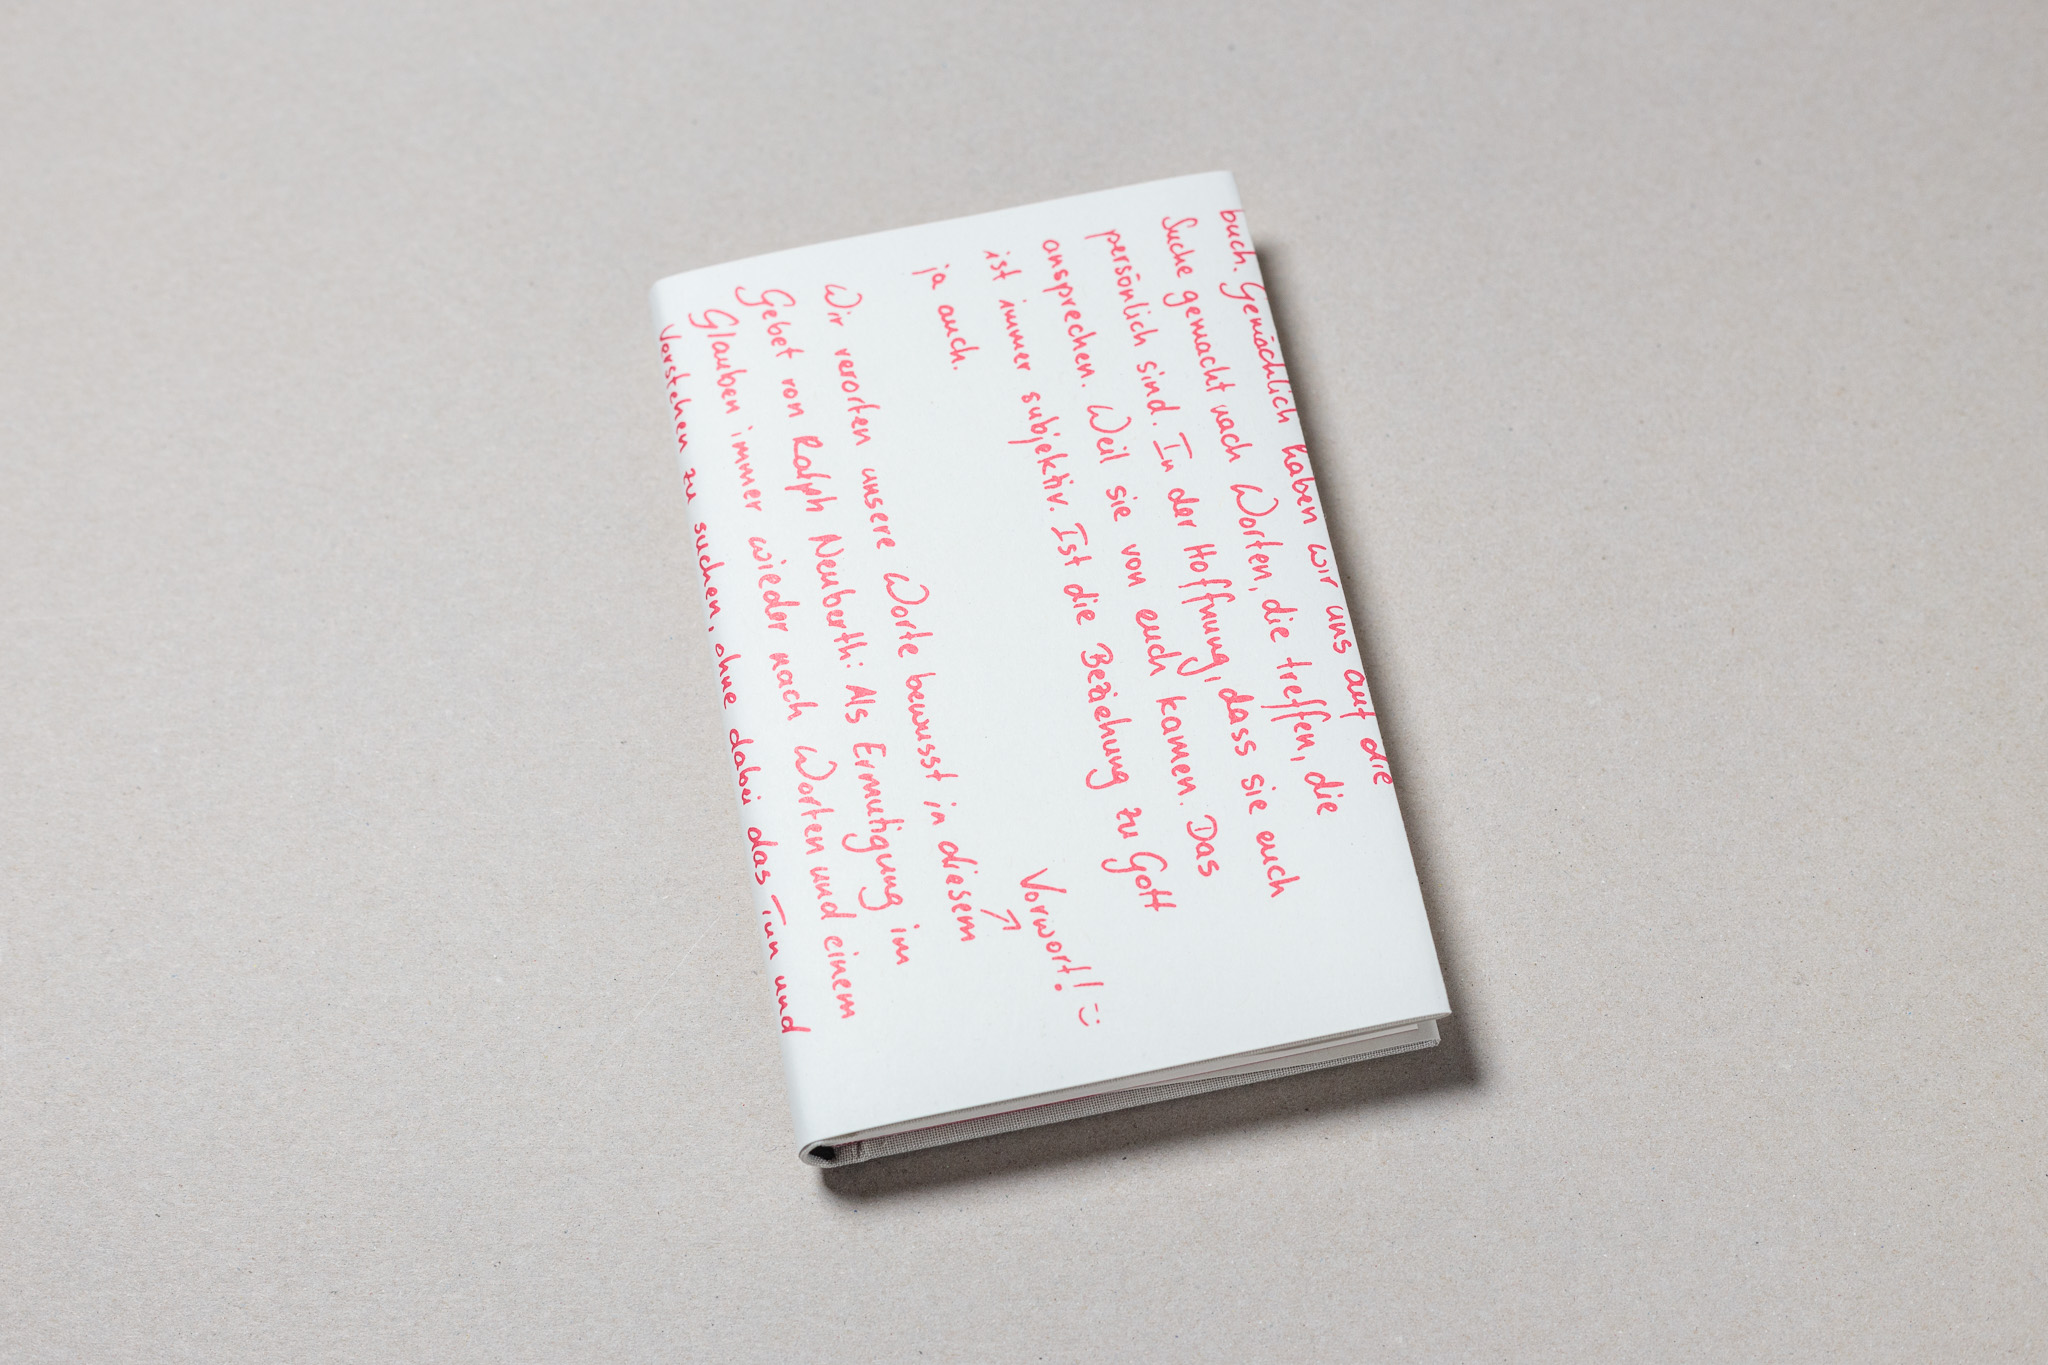 buch. Gemächlich haben wir uns auf die
Suche gemacht nach Worten, die treffen, die
persönlich sind. In der Hoffnung, dass sie euch
ansprechen. Weil sie von euch kamen. Das
ist immer subjektiv. Ist die Beziehung zu Gott
ja auch.
Vorwort! :)
Wir verorten unsere Worte bewusst in diesem
Gebet von Ralph Neuberth: Als Ermutigung im
Glauben immer wieder nach Worten und einem
Verstehen zu suchen, ohne dabei das Tun und